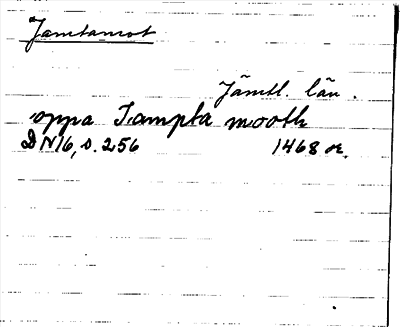 Jamtamot
Jämtl. län.
oppa Jampta mooth
DN16, s. 256 1468 or.